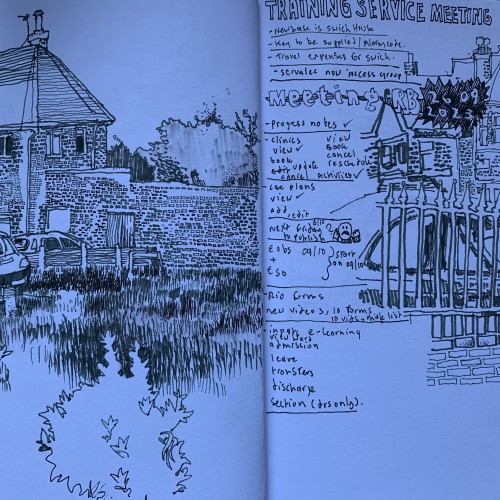 TRAINING SERVICE MEETING
- New base is swich House
- Key to be supplied / Alarm code.
- Travel expenses for swich.
- servalec now 'access group
Meeting RB
- Progess notes ✓
- clinics view
view ✓ Book
book cancel
edit update reschedule
cancel Activities ✓
- care plans
view ✓
add, edit
Next Friday 2
to publish
E obs 09/10 } start
+ } on 09/10
ESO
- Rio forms
new videos, 10 forms
10 videos, make list
- inpats e-learning
view ward
admission
leave
transfers
discharge
section (drs only).